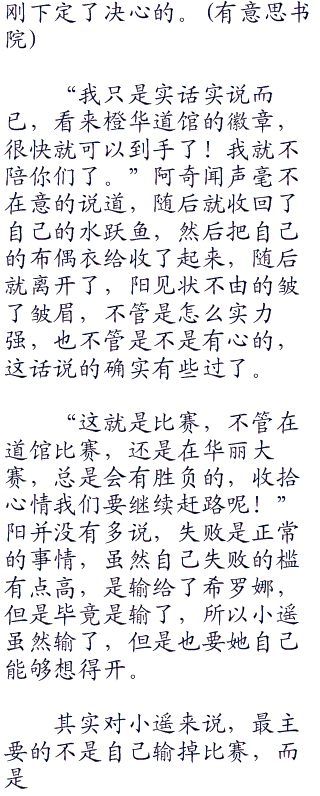 刚下定了决心的。(有意思书
院)
“我只是实话实说而
已，看来橙华道馆的徽章，
很快就可以到手了！我就不
陪你们了。”阿奇闻声毫不
在意的说道，随后就收回了
自己的水跃鱼，然后把自己
的布偶衣给收了起来，随后
就离开了，阳见状不由的皱
了皱眉，不管是怎么实力
强，也不管是不是有心的，
这话说的确实有些过了。
“这就是比赛，不管在
道馆比赛，还是在华丽大
赛，总是会有胜负的，收拾
心情我们要继续赶路呢！”
阳并没有多说，失败是正常
的事情，虽然自己失败的槛
有点高，是输给了希罗娜，
但是毕竟是输了，所以小遥
虽然输了，但是也要她自己
能够想得开。
其实对小遥来说，最主
要的不是自己输掉比赛，而
是